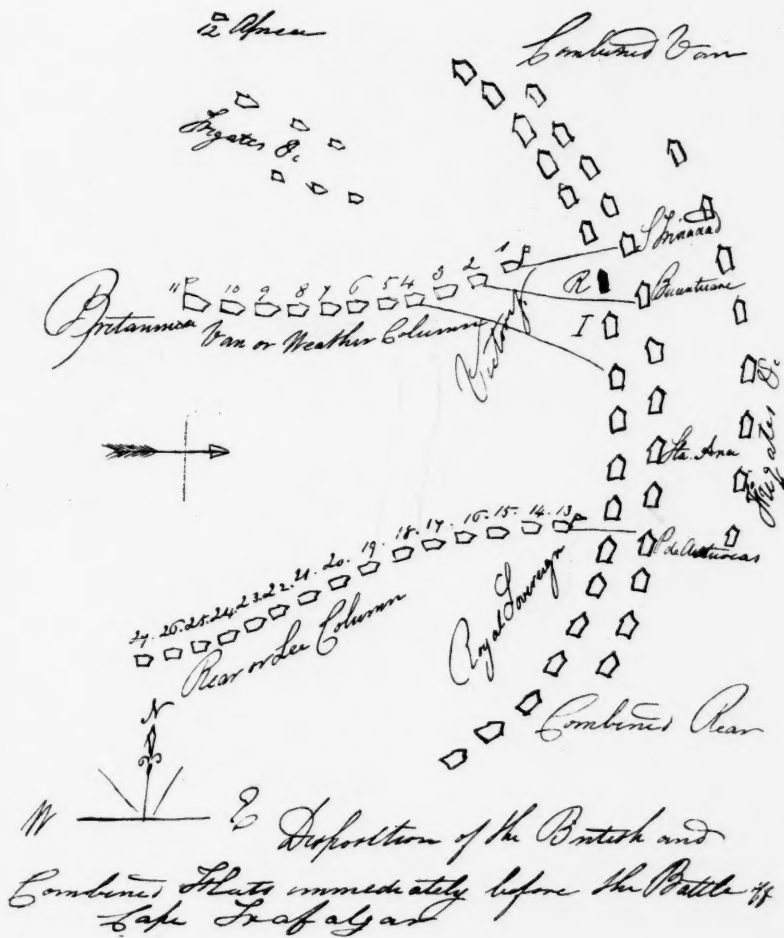 12 Africa
Combined Van
Frigates &c
S Trinidad
1
2
3
4
5
6
7
8
9
10
11
R
Bucentaure
Britannica
Van or Weather Column
Victory
I
Sta. Ana
Frigates &c
13
14.
15.
16.
17.
18.
19.
20.
21.
22.
23.
24.
25.
26.
27.
P de Asturias
Rear or Lee Column
Royal Sovereign
Combined Rear
N
W
E
Disposition of the British and
Combined Fleets immediately before the Battle off
Cape Trafalgar